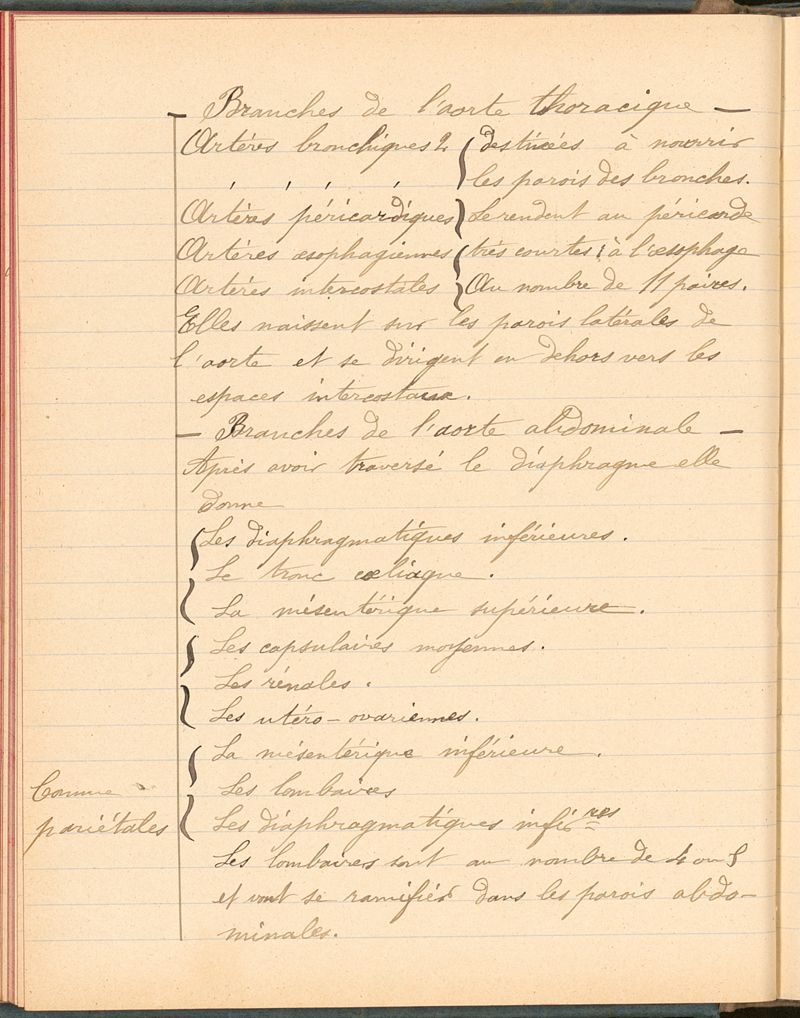 – Branches de l'aorte thoracique –
Artères bronchiques 2 { destinées à nourrir
les parois des bronches.
Artères péricardiques } Se rendent au péricarde
Artères œsophagiennes { très courtes : à l'œsophage
Artères intercostales } Au nombre de 11 paires.
Elles naissent sur les parois latérales de
l'aorte et se dirigent en dehors vers les
espaces intercostaux.
– Branches de l'aorte abdominale –
Après avoir traversé le diaphragme elle
donne
Les diaphragmatiques inférieures.
Le tronc cœliaque.
La mésentérique supérieure.
Les capsulaires moyennes.
Les rénales.
Les utéro-ovariennes.
La mésentérique inférieure.
Les lombaires
Comme
pariétales
Les diaphragmatiques infé res
Les lombaires sont au nombre de 4 ou 5
et vont se ramifier dans les parois abdo-
minales.